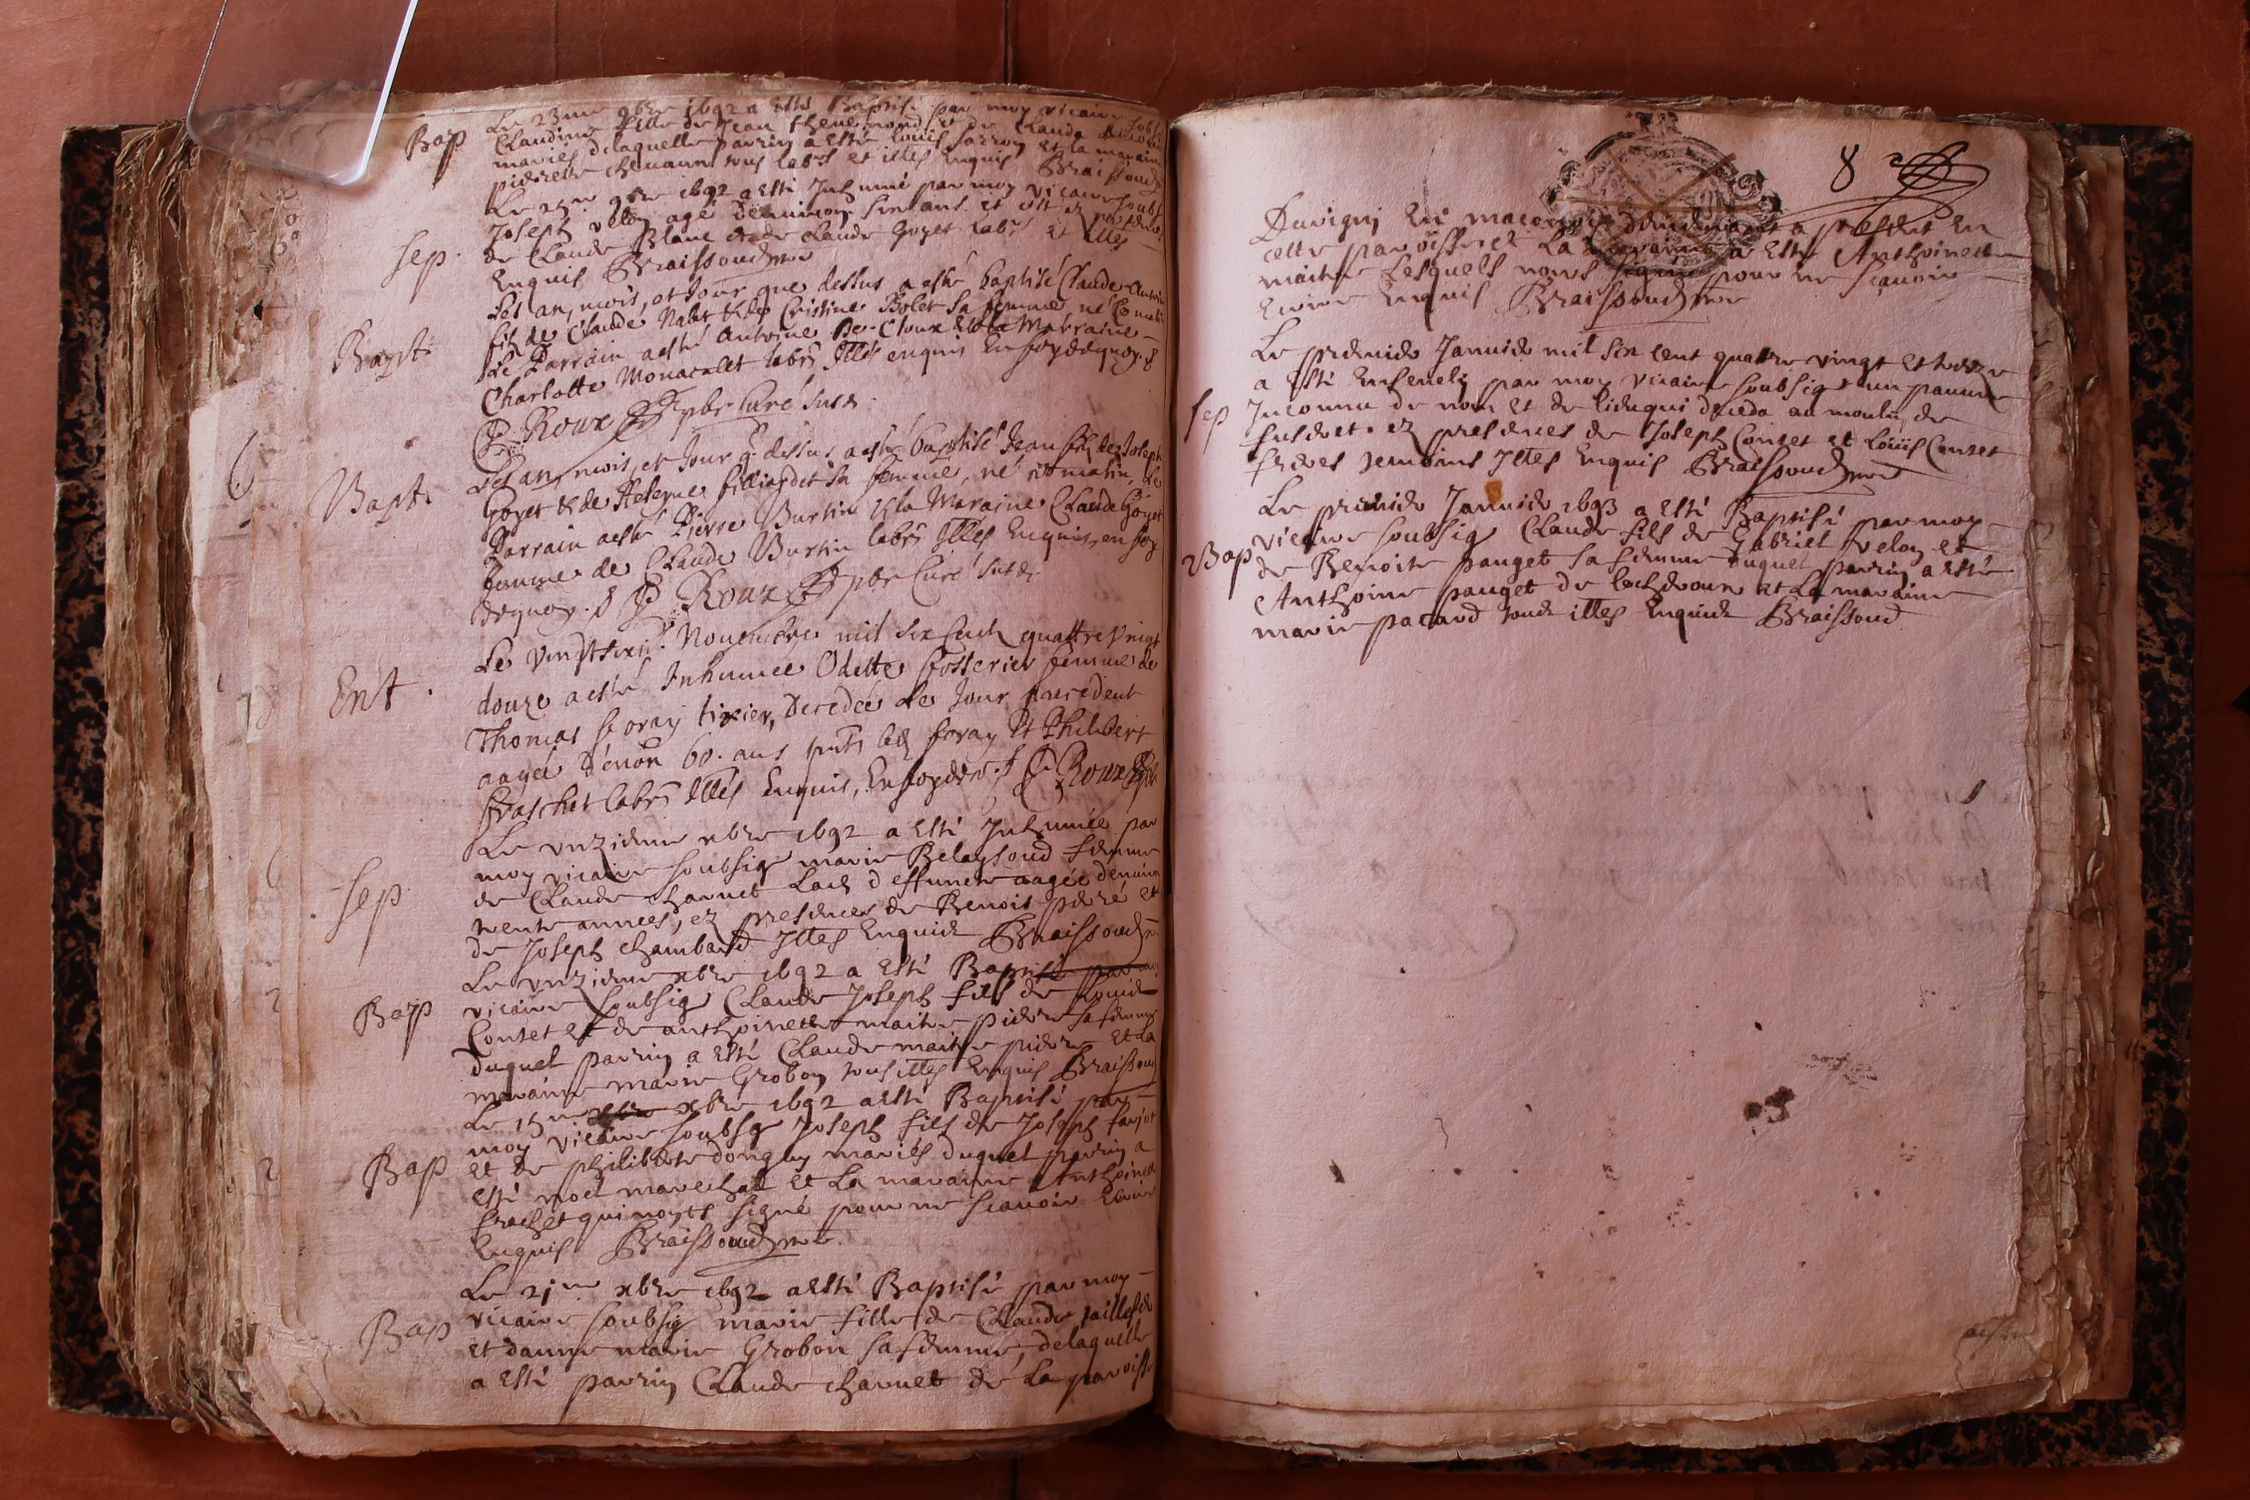 Bap
Le 23me 9bre 1692 a Esté Baptisé par moy vicaire soubsig
Claudine fille de Jean thevenond et de Claude
mariés delaquelle parrin a Esté Louis sarron et la maraine
pierrette chevann tous labrs et illes Enquis Braissoud
sep.
Le 25me 9bre 1692 a Esté Inhumé par moy vicaire soubs
Joseph velon agé denviron six ans et est ez presences
de Claude Blanc et de Claude Goyet labrs et illes
Enquis Braissoud vre
Bapt.
Les an, mois, et Jour que dessus a esté baptisé Claude Antoine
fils de Claude Nalet & de Cristine Bolet sa femme né
Le Parrain a esté Antoine De Cloux & la Marraine
Charlotte Monacalet labrs Illés enquis En foy dequoy. §
P. Roux pbr curé susd.
Bapt.
Les an, mois, et Jour q. dessus a esté baptisé Jean fils de Joseph
Goyet & de Helene filliardet sa femme, né ce matin, Le
Parrain a esté Pierre Burtin & la Maraine Claude Goyet
femme de Claude Burtin labrs Illes Enquis, en foy
dequoy. § P. Roux pbr Curé susd.
Ent.
Le vingtsix. Novembre mil six cent quattre vingt
douze a esté Inhumee Odette fosserier femme de
Thomas foray tixier, Decedée Le Jour precedent
aagée d'enon 60. ans pnts led foray Et Philibert
fraschet labrs Illés Enquis, En foy de § P. Roux
sep
Le unzieme xbre 1692 a Esté Inhumée par
moy vicaire soubsig marie Belaysoud femme
de Claude charvet Lad deffunte aagée denviron
trente années, ez presences de Benoit pierre et
de Joseph chambard Illes Enquis Braissoud
Bap
Le unzieme xbre 1692 a Esté Baptisé par moy
vicaire soubsig Claude Joseph fils de Louis
Contet et de anthoinette maitre pierre sa femme
duquel parrin a Esté Claude maitre pierre Et La
maraine marie Grobon tous illes Enquis Braissoud
Bap
Le 15me xbre 1692 a Esté Baptisé par
moy vicaire soubsig Joseph fils de Joseph farjot
Et de philiberte donguy mariés duquel parrin a
Esté noel marechal et La maraine Anthoinea
frachet qui nonts signé pour ne scavoir Ecrire
Enquis Braissoud vre.
Bap
Le 21me xbre 1692 a Esté Baptisé par moy
vicaire soubsig marie fille de Claude taillefer
et danne marie Grobon sa femme, delaquelle
a Esté parrin Claude charvet de La paroisse
8
Davigny En maconnois demeurant a present En
cette paroisse et La maraine a Esté Anthoinette
maitre Lesquels nonts signé pour ne scavoir
Ecrire Enquis Braissoud vre
sep
Le premier Janvier mil six cent quatre vingt et treize
a Esté Enseveli par moy vicaire soubsig un pauvre
Inconnu de nom et de lieu qui deceda au moulin de
susdoet. ez presences de Joseph Contet et Loüis Contet
freres temoins Illes Enquis Braissoud vre
Bap
Le premier Janvier 1693 a Esté Baptisé par moy
vicaire soubsig Claude fils de Gabriel velon et
de Benoite pauget sa femme duquel parrin a Esté
Anthoine pauget de et La maraine
marie pacard tous illes Enquis Braissoud